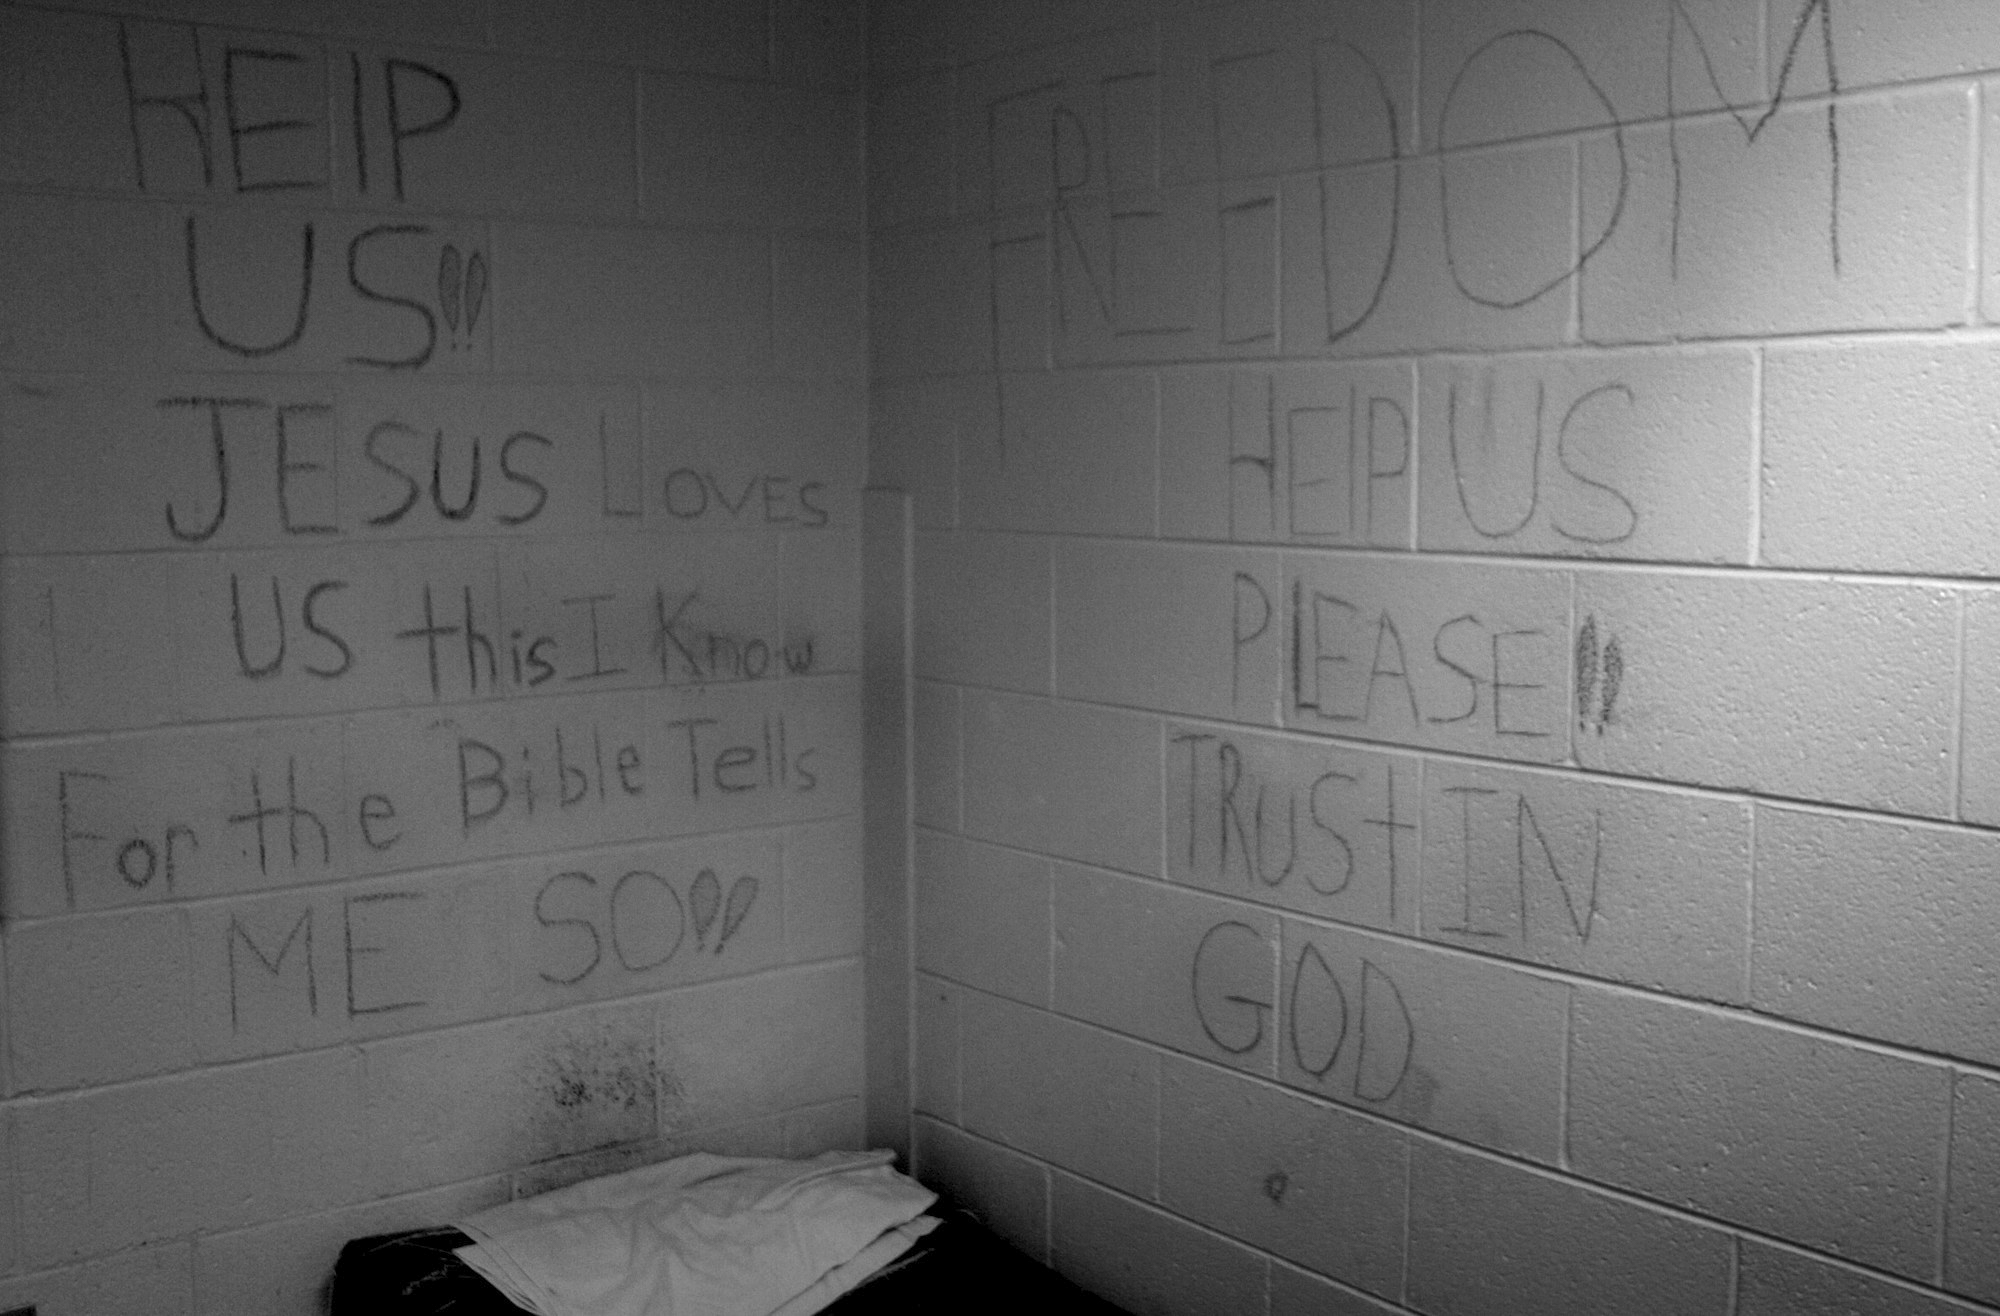 HElP
US!!
JESUS LOVES
US this I Know
For the Bible Tells
ME SO!!
FREEDOM
HElP US
PLEASE!!
TRUSt IN
GOD